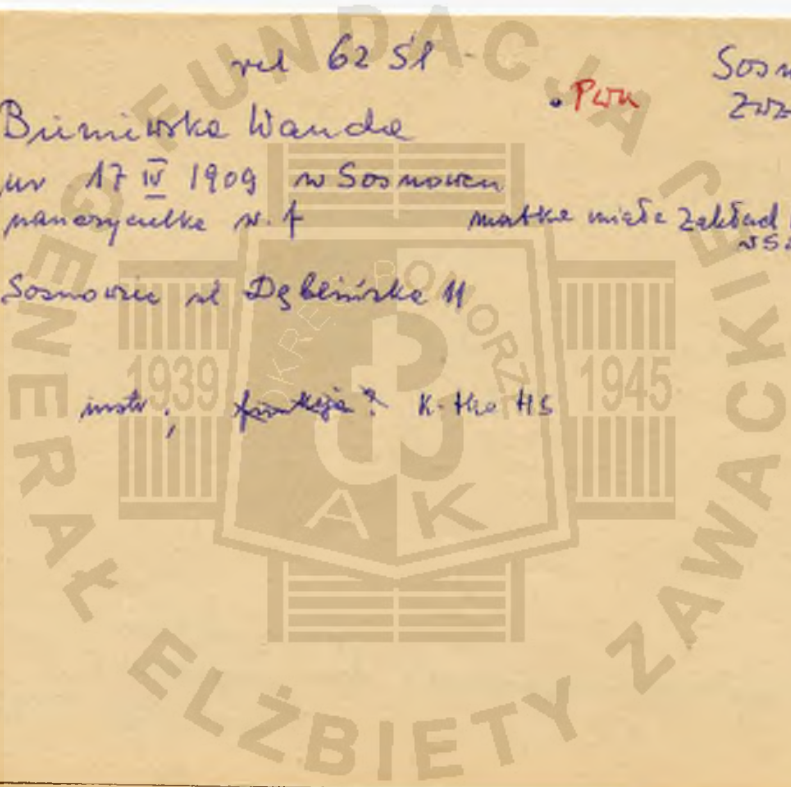 rel 62 Śl -
Sosn
. Pwn
Zwz
Wanda
ur 17 IV 1909 w Sosnowcu
nauczycielka w. f
matka miała Zakład
Sosnowiec ul Dęblińska 11
instr ; funkcja? K-tka HS
FUNDACJA GENERAŁ ELŻBIETY ZAWACKIEJ
OKRĘG POMORZE
1939
1945
AK